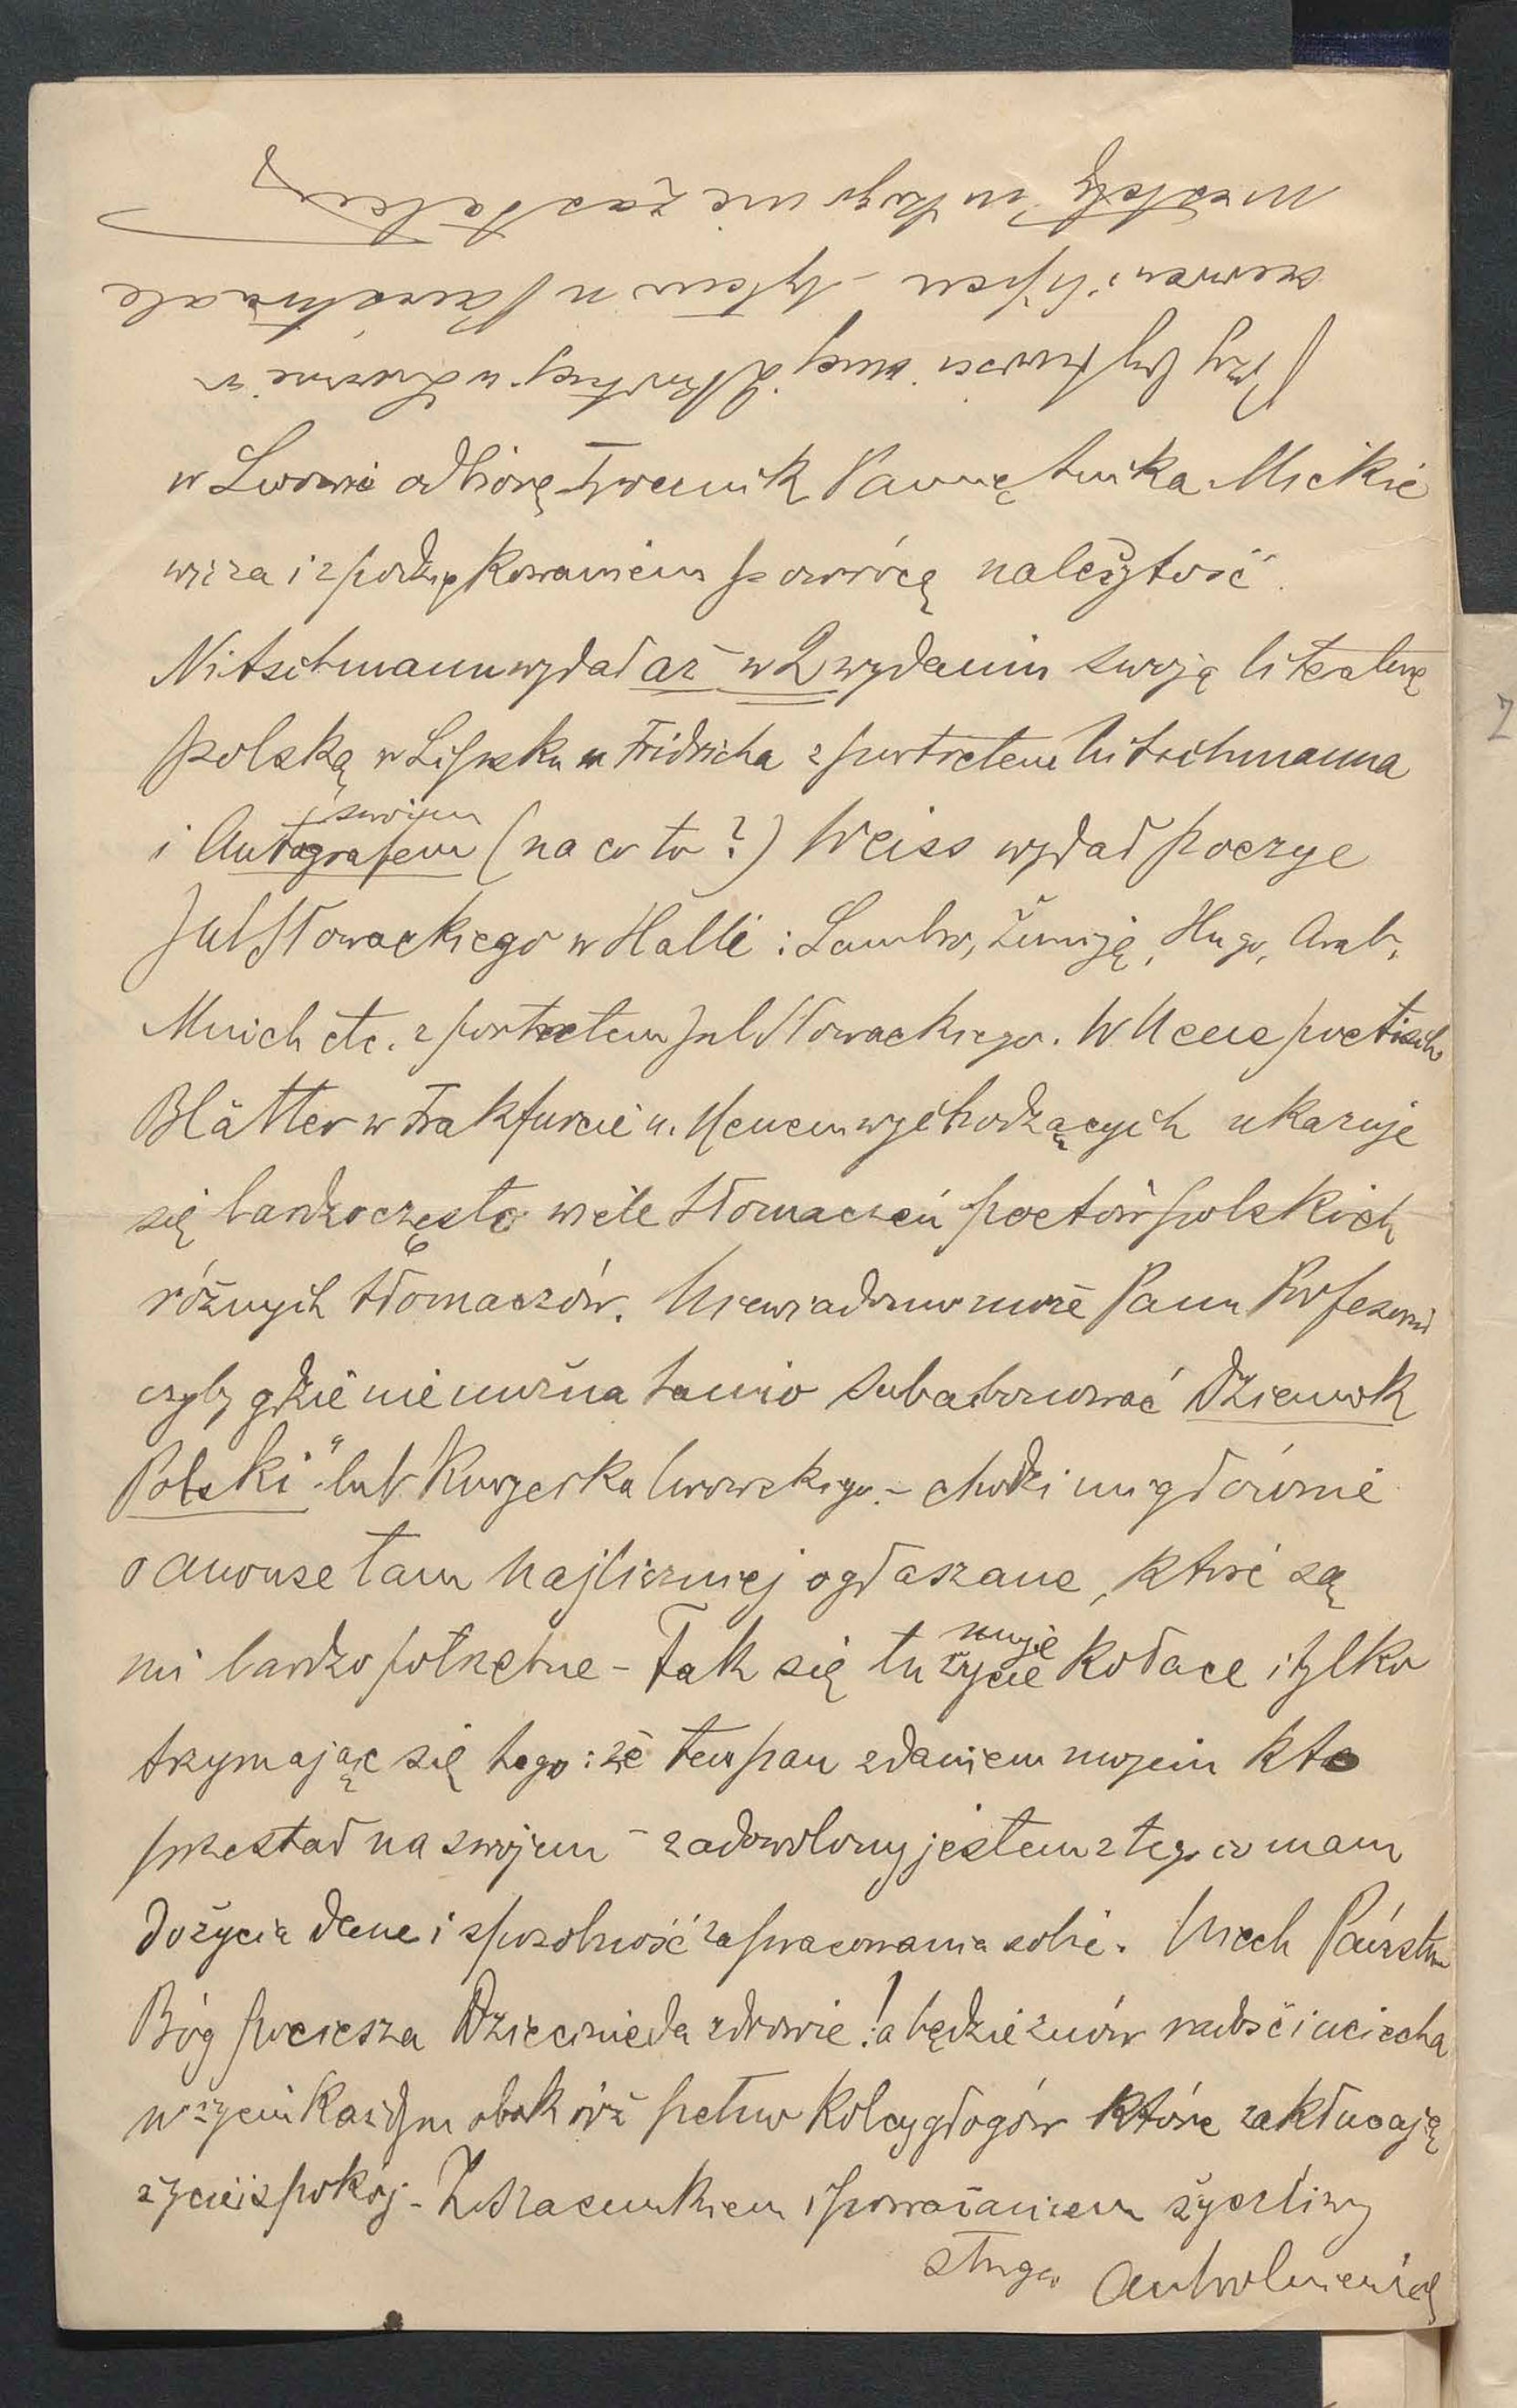 w Lwowie odbiorę Tywecnik Pamiętnika Mickie
wicza i z podziękowaniem powrócę należytość.
Nitschmann wydał aż w 2 wydaniu swoją literaturę
polską w Lipsku u Fridricha z portretem Nitschmanna
i Autografem swojem (na co to?) Weiss wydał poezye
Jul Słowackiego w Halli: Lambro, Żmiję, Hugo, Arab,
Mnich etc. z portretem Jul Słowackiego. W Neue poetisch
Blätter w Frakfurcie n. Menem wychodzących ukazuje
się bardzo często wiele tłomaczeń poetów polskich
różnych tłomaczów. Niewiadomo może Panu Profesorowi
czyby gdzie nie można tanio subabonować Dziennik
Polski" lub Kuryerka lwowskiego. – chodzi mi głównie
o anonse tam najliczniej ogłaszane, które są
mi bardzo potrzebne – Tak się tu moje życie kołace i tylko
trzymając się tego: że ten pan zdaniem mojem kto
przestał na swojem – zadowolony jestem z tego co mam
do życia dane i sposobność zapracowania sobie. Niech Państwa
Bóg pociesza Dziecinie da zdrowie! a będzie znów radość i uciecha
w życiu każdym obok róż pełno kolcy głogów które zakłucają
życie i spokój – Z szacunkiem i poważaniem życzliwy
sługa
Przy bytności mej we Lwowie w
czerwcu i lipcu – byłem u Pana ale
niestety nikogo nie zastałem